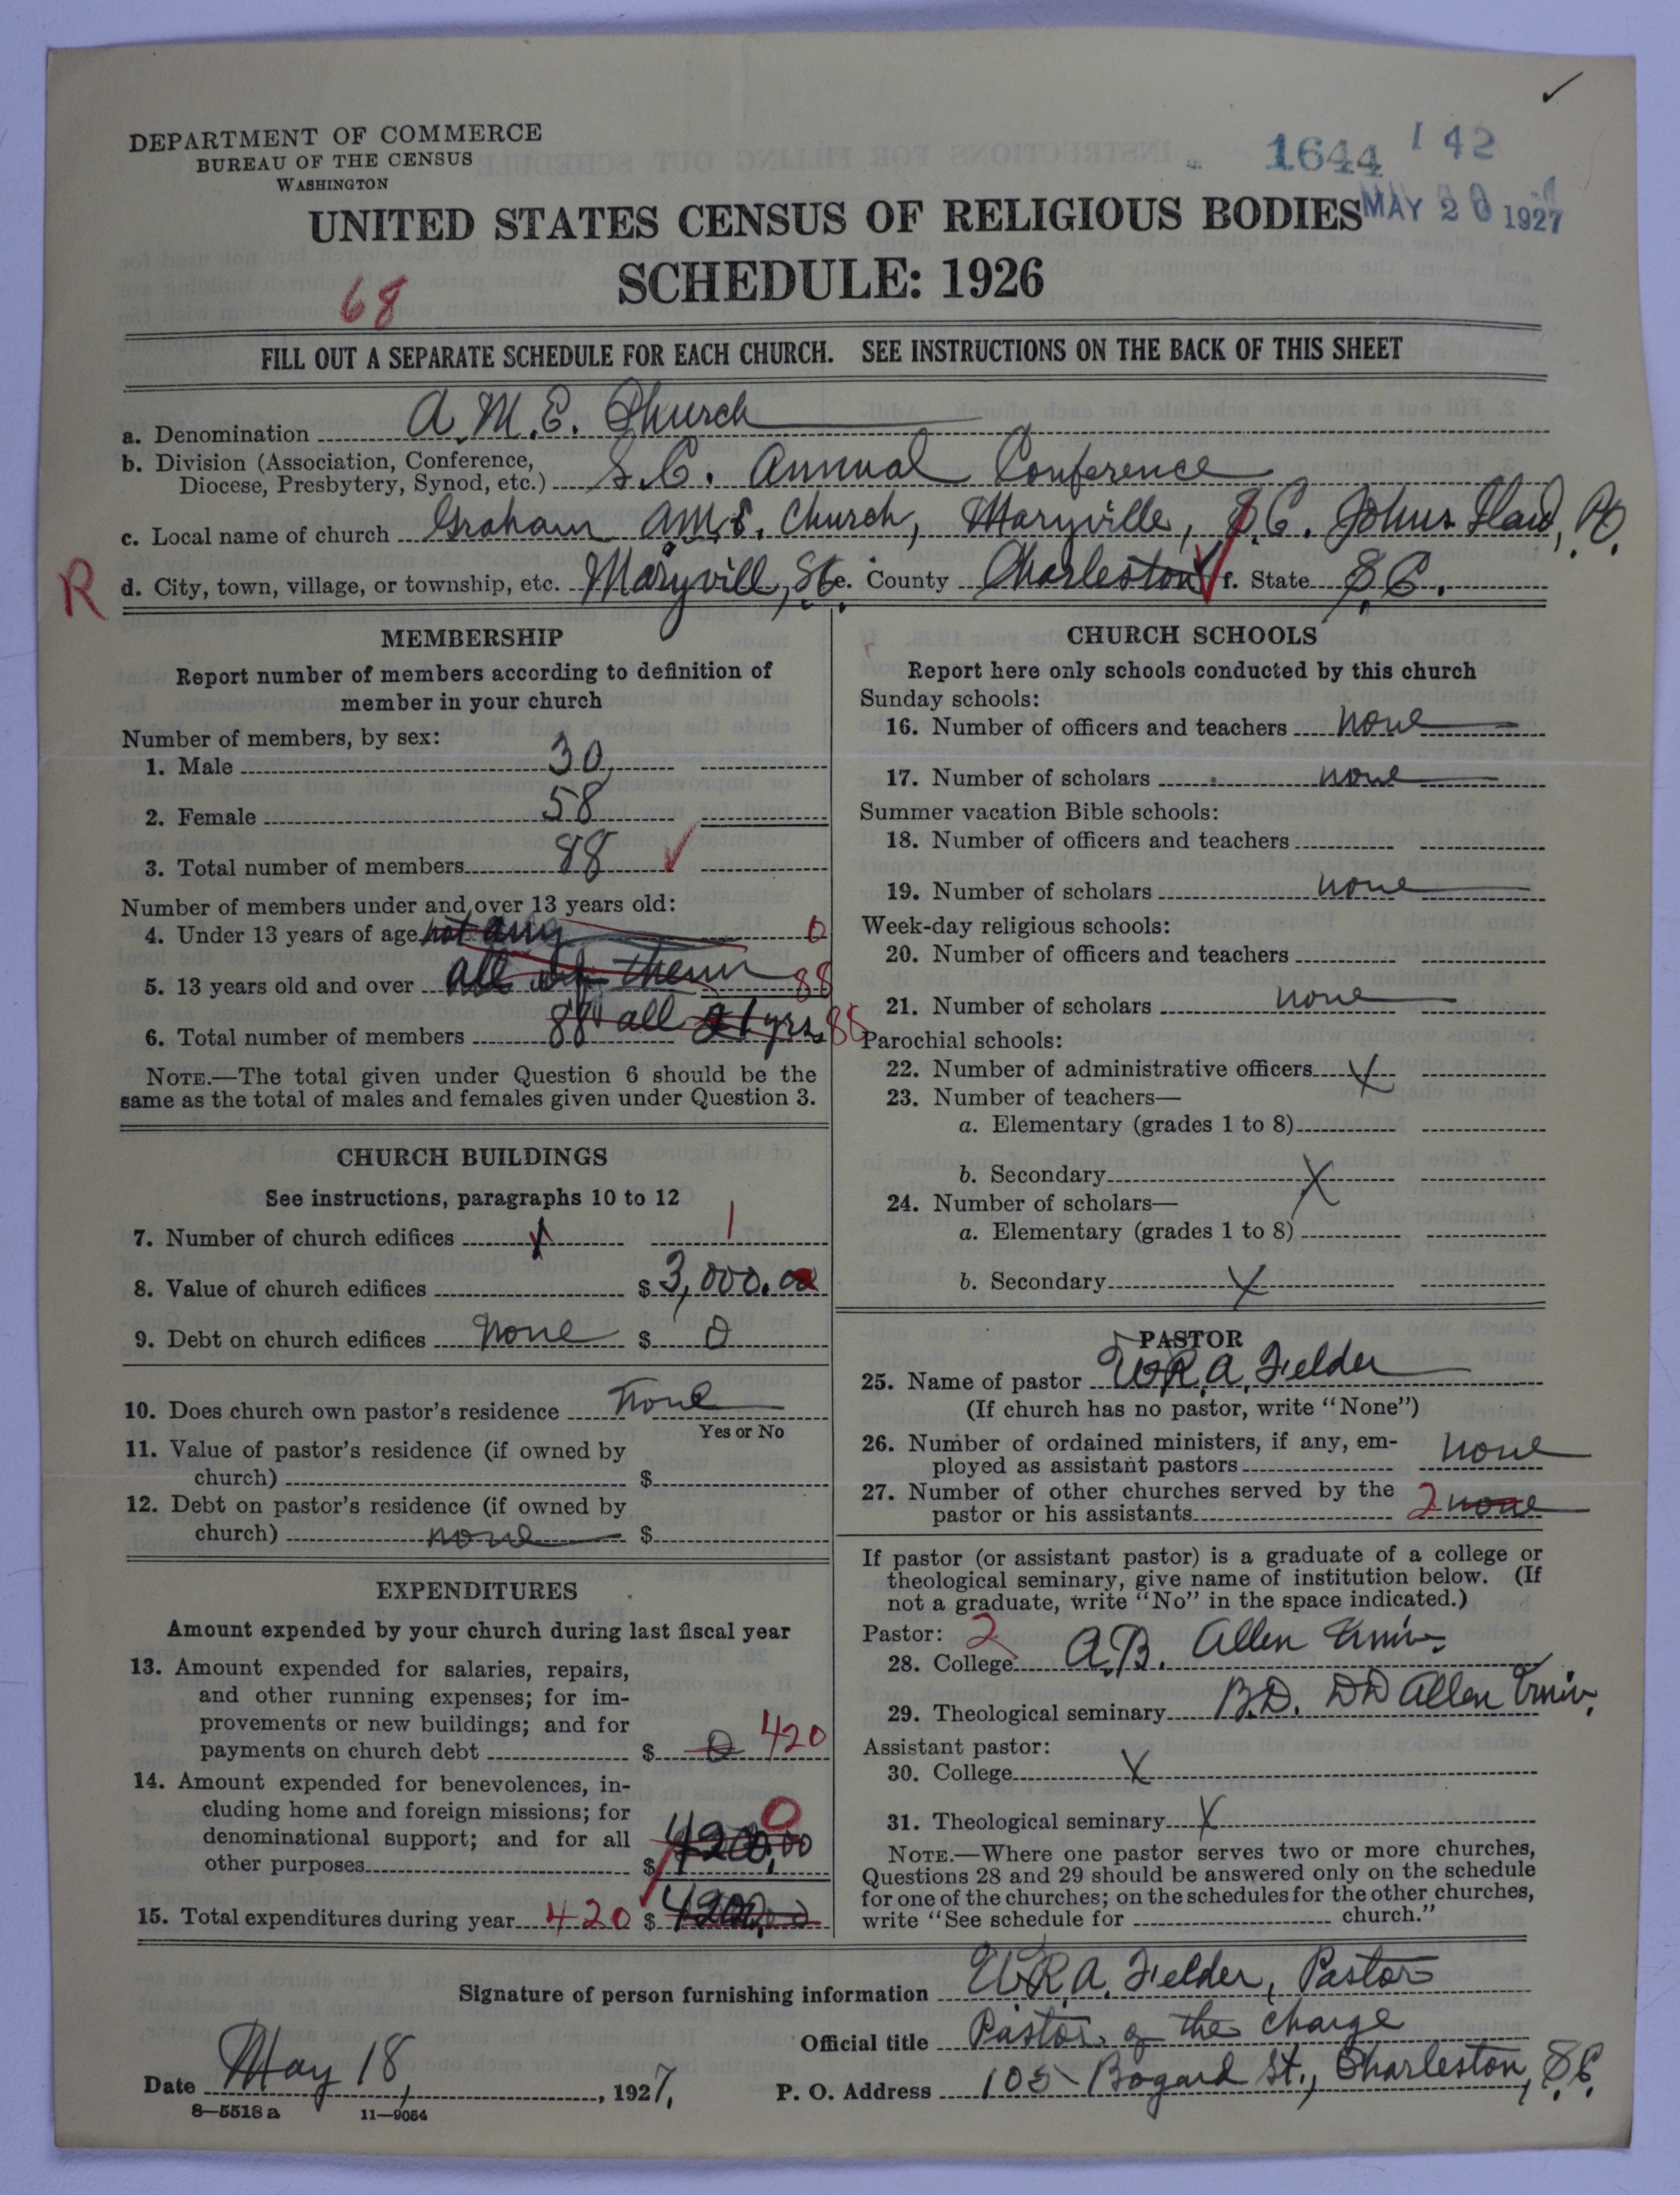 DEPARTMENT OF COMMERCE
BUREAU OF THE CENSUS
WASHINGTON
1644 142
MAY 20 1927
UNITED STATES CENSUS OF RELIGIOUS BODIES
SCHEDULE: 1926
68
FILL OUT A SEPARATE SCHEDULE FOR EACH CHURCH. SEE INSTRUCTIONS ON THE BACK OF THIS SHEET
a. Denomination A.M.E. Church
b. Division (Association, Conference,
Diocese, Presbytery, Synod, etc.) S.C. Annual Conference
c. Local name of church Graham A.M.E. Church, Maryville, S.C. Johns
R d. City, town, village, or township, etc. Maryvill, S.C. e. County Charleston f. State S.C.
MEMBERSHIP
Report number of members according to definition of
member in your church
Number of members, by sex:
1. Male 30
2. Female 58
3. Total number of members 88
Number of members under and over 13 years old:
4. Under 13 years of age not any 0
5. 13 years old and over all of them 88
6. Total number of members 88 all 21 yrs. 88
NOTE.—The total given under Question 6 should be the
same as the total of males and females given under Question 3.
CHURCH BUILDINGS
See instructions, paragraphs 10 to 12
7. Number of church edifices 1
8. Value of church edifices $ 3,000.00
9. Debt on church edifices none $ 0
10. Does church own pastor's residence none
Yes or No
11. Value of pastor's residence (if owned by
church) $
12. Debt on pastor's residence (if owned by
church) none $
EXPENDITURES
Amount expended by your church during last fiscal year
13. Amount expended for salaries, repairs,
and other running expenses; for im-
provements or new buildings; and for
payments on church debt $ 0 420
14. Amount expended for benevolences, in-
cluding home and foreign missions; for
denominational support; and for all
other purposes $ 0
15. Total expenditures during year 420 $
CHURCH SCHOOLS
Report here only schools conducted by this church
Sunday schools:
16. Number of officers and teachers none
17. Number of scholars none
Summer vacation Bible schools:
18. Number of officers and teachers
19. Number of scholars none
Week-day religious schools:
20. Number of officers and teachers
21. Number of scholars none
Parochial schools:
22. Number of administrative officers X
23. Number of teachers—
a. Elementary (grades 1 to 8)
b. Secondary X
24. Number of scholars—
a. Elementary (grades 1 to 8)
b. Secondary X
PASTOR
25. Name of pastor W.R.A. Fielder
(If church has no pastor, write "None")
26. Number of ordained ministers, if any, em-
ployed as assistant pastors none
27. Number of other churches served by the
pastor or his assistants 2 none
If pastor (or assistant pastor) is a graduate of a college or
theological seminary, give name of institution below. (If
not a graduate, write "No" in the space indicated.)
Pastor: 2
28. College A.B. Allen Univ.
29. Theological seminary B.D. DD Allen Univ.
Assistant pastor:
30. College X
31. Theological seminary X
NOTE.—Where one pastor serves two or more churches,
Questions 28 and 29 should be answered only on the schedule
for one of the churches; on the schedules for the other churches,
write "See schedule for church."
Signature of person furnishing information W.R.A. Fielder, Pastor
Official title Pastor of the charge
Date May 18, 1927. P. O. Address 105 Bogard St., Charleston, S.C.
8—5518a 11—9054